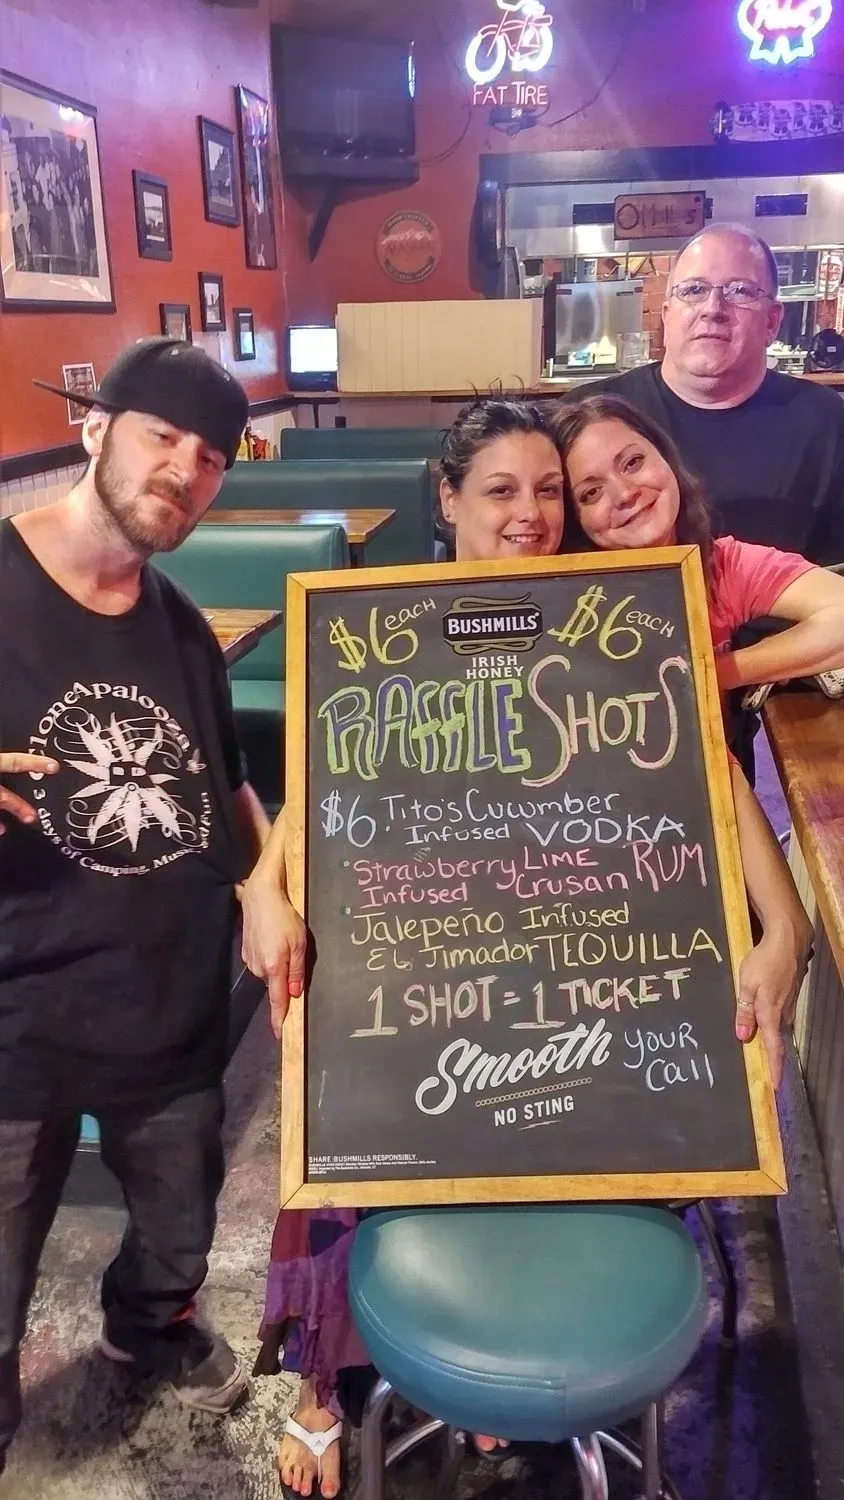 FAT TIRE
Pabst
$6 each
BUSHMILLS
$6 each
IRISH
HONEY
RAFFLE SHOTS
$6
Tito's Cucumber
Infused VODKA
Strawberry Lime RUM
Infused Crusan
Jalepeño Infused
El Jimador TEQUILLA
1 SHOT = 1 TICKET
Smooth
your
Call
NO STING
SHARE BUSHMILLS RESPONSIBLY.
CloneApalooza
3 days of Camping, Music